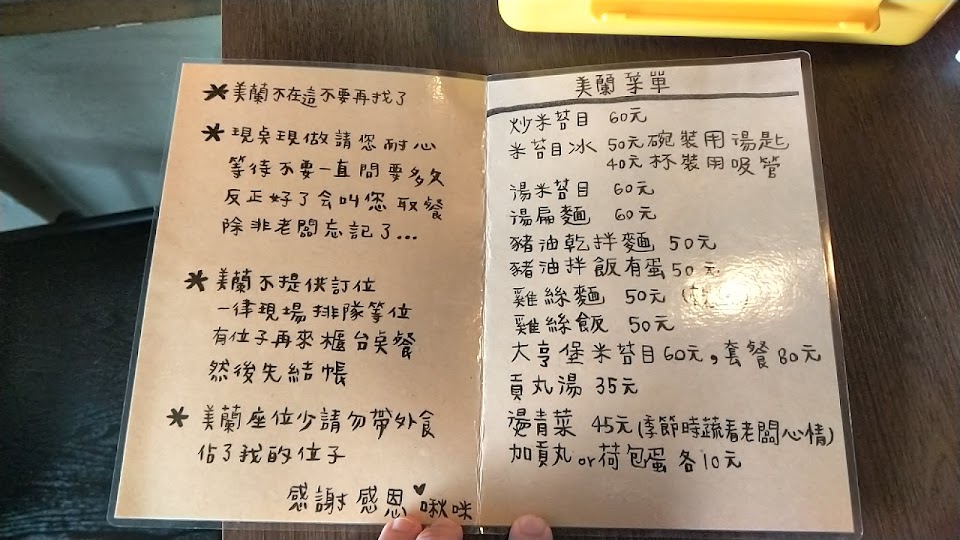 *美蘭不在這不要再找了
*現桌現做請您耐心
等待不要一直問要多久
反正好了会叫您取餐
除非老闆忘記了...
*美蘭不提供訂位
一律現場排隊等位
有位子再來櫃台桌餐
然後先結帳
*美蘭座位少請勿帶外食
佔了我的位子
感謝感恩♥啾咪
美蘭菜單
炒米苔目 60元
米苔目冰 50元碗裝用湯匙
40元杯裝用吸管
湯米苔目 60元
湯扁麵 60元
豬油乾拌麵 50元
豬油拌飯有蛋50元
雞絲麵 50元
雞絲飯 50元
大亨堡米苔目60元,套餐80元
貢丸湯 35元
燙青菜 45元(季節時蔬看老闆心情)
加貢丸or荷包蛋各10元